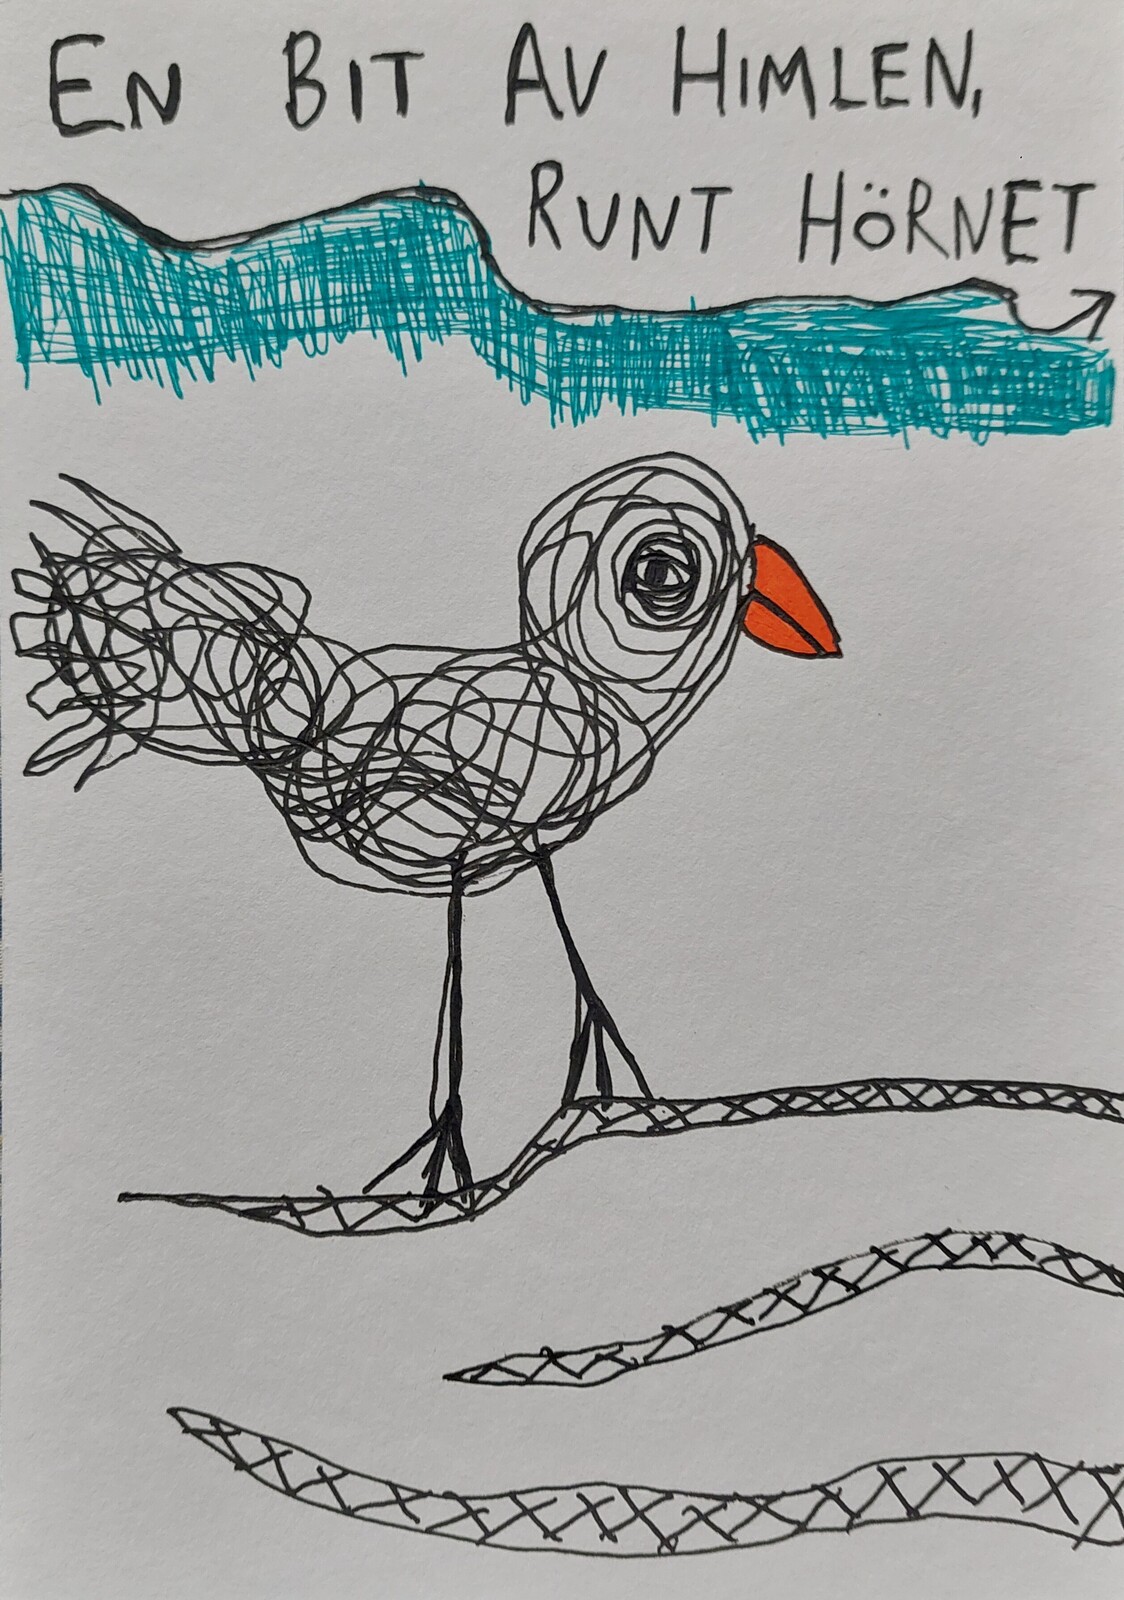 EN BIT AV HIMLEN,
RUNT HÖRNET